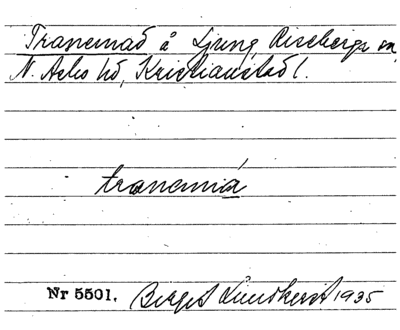 Tranemad å Ljung, Riseberga sn,
N. Asbo hd, Kristianstads l.
tranemå
Nr 5501. Birgit Lundkvist 1935